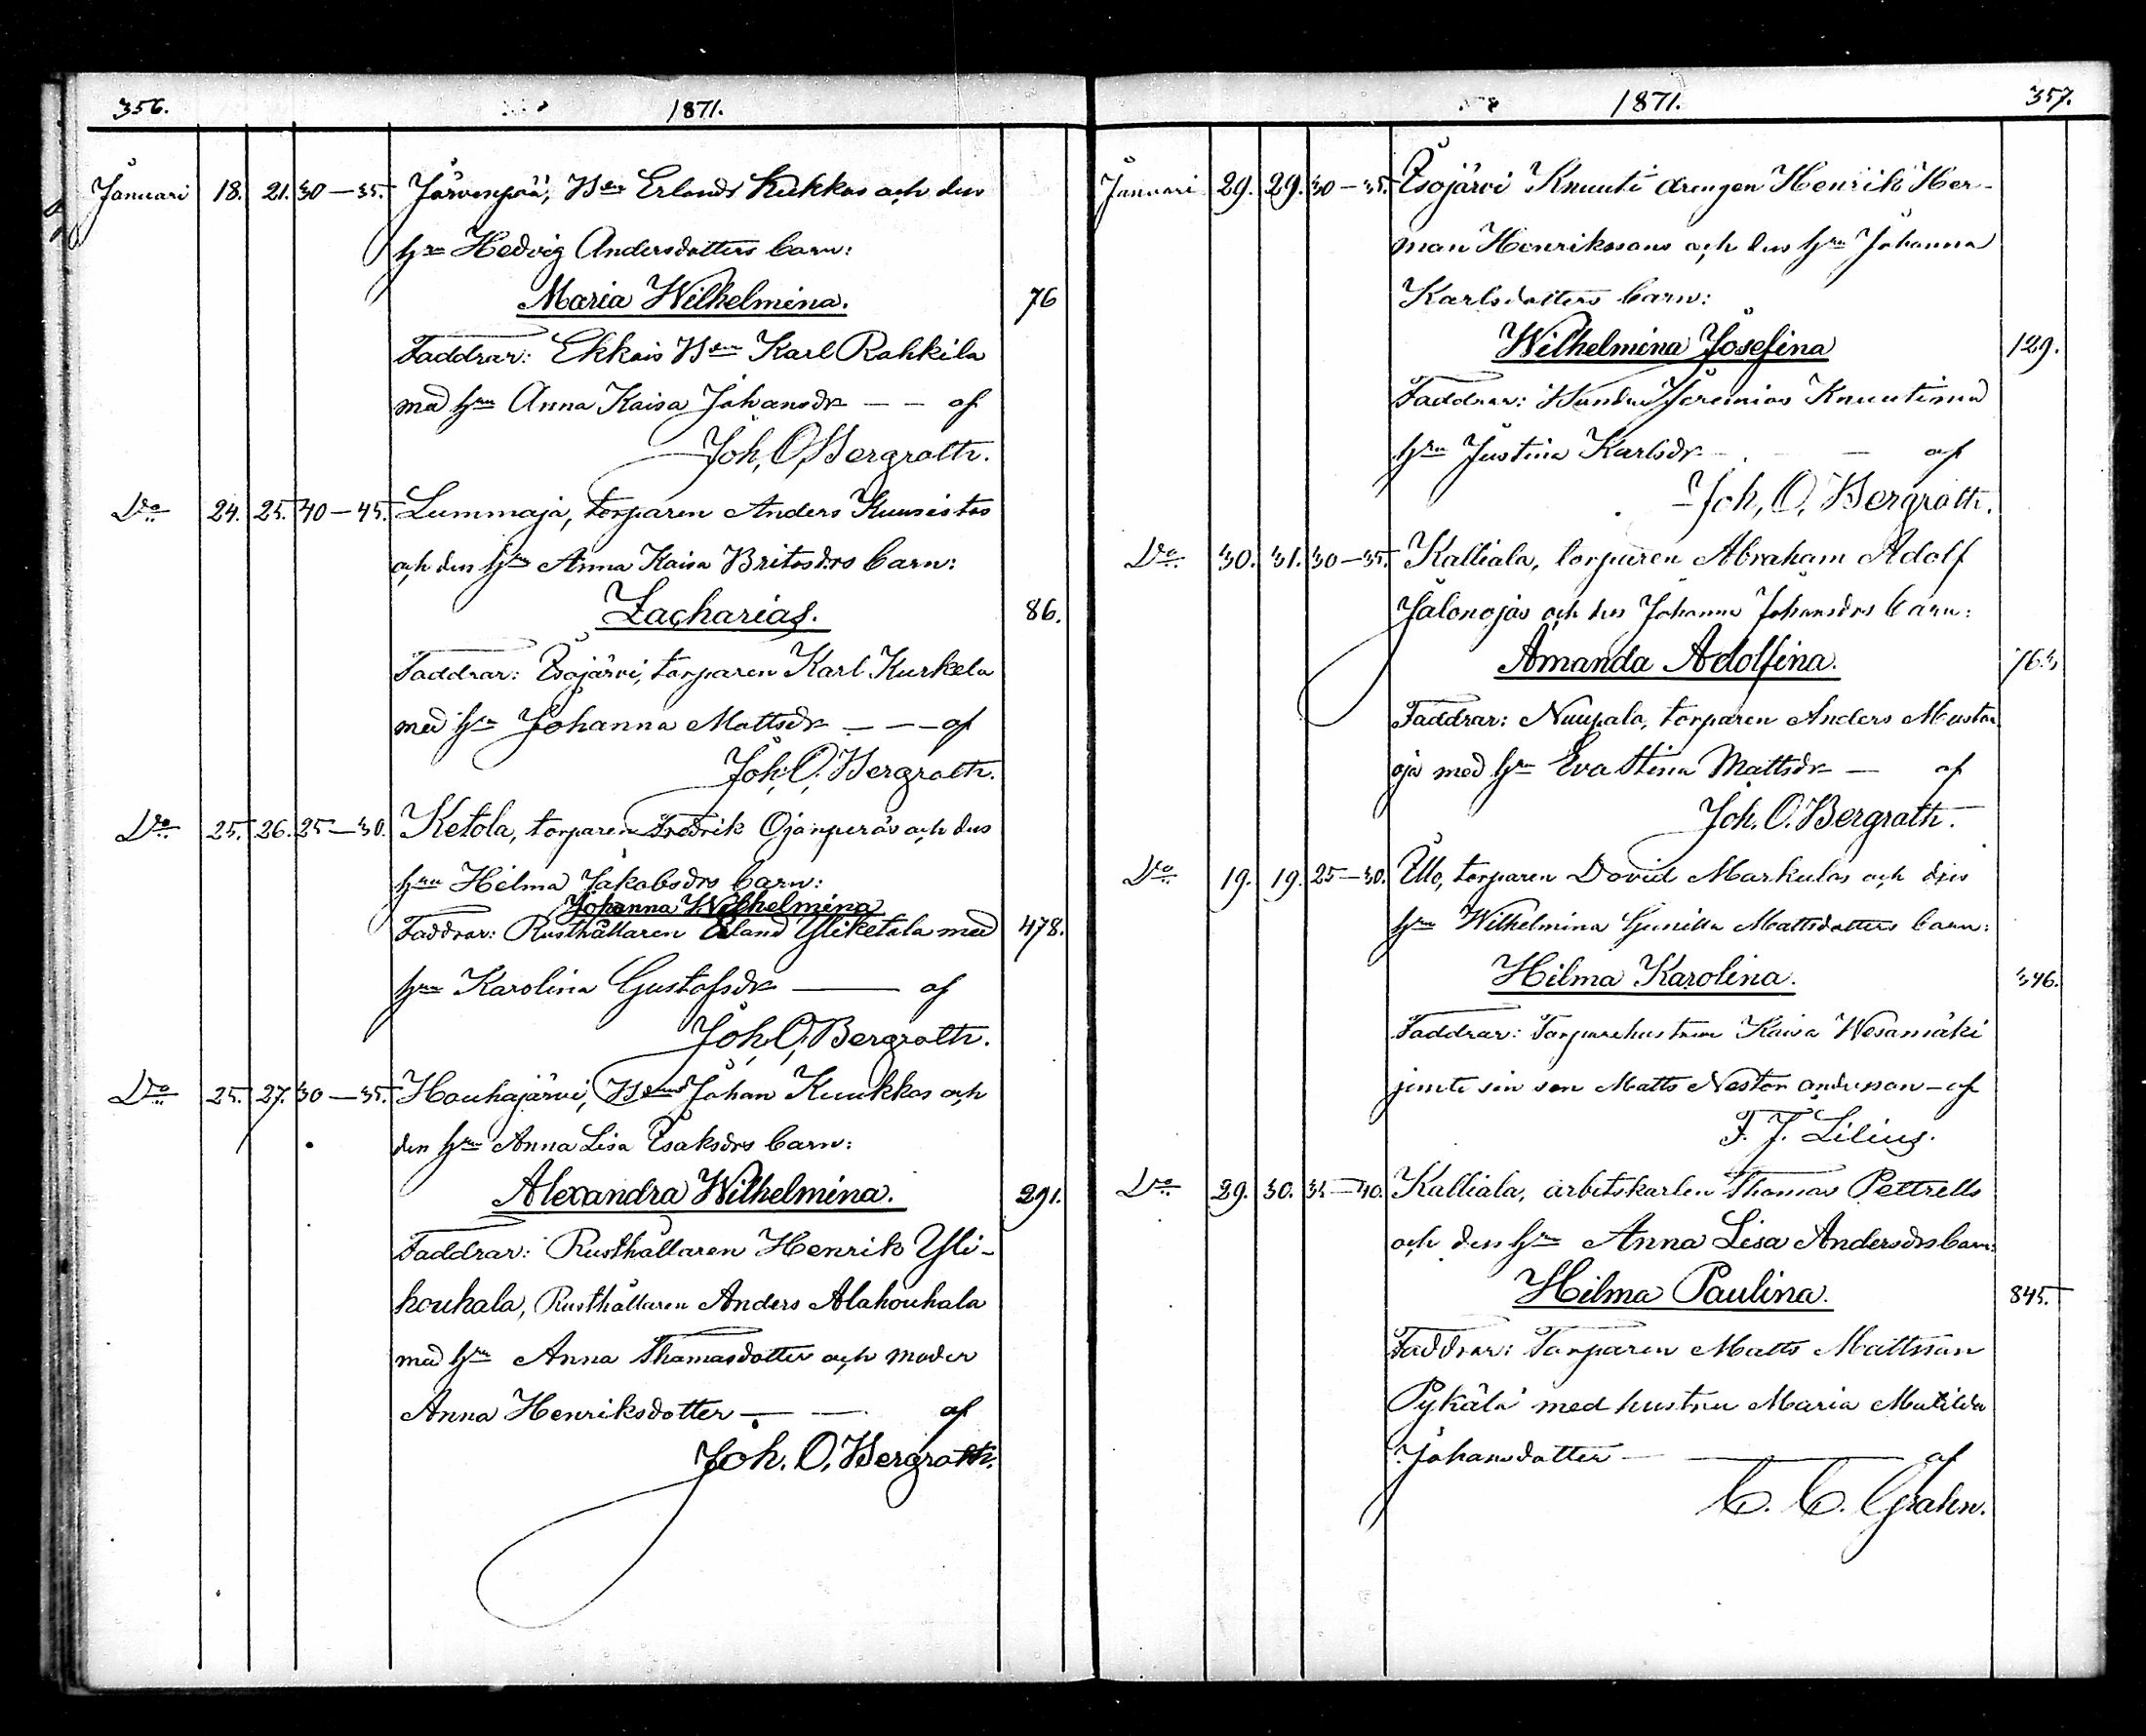 356. 1871.
Januari 18. 21. 30-35. Järvenpää, Bdn Erlands Kukkas och dess
hru Hedvig Andersdotters barn:
Maria Wilhelmina. 76
Faddrar: Ekkois Bdn Karl Rahkila
med hru Anna Kaisa Johansdr - - af
Joh, O, Bergroth.
Do 24. 25. 40-45. Lummaja, torparen Anders Kuusistos
och dess hru Anna Kaisa Britasdrs barn:
Zacharias. 86.
Faddrar: Isojärvi, torparen Karl Kurkela
med hru Johanna Mattsdr - - - af
Joh, O, Bergroth.
Do 25. 26. 25-30. Ketola, torparen Fredrik Ojanperäs och dess
hru Hilma Jakobsdrs barn:
Johanna Wilhelmina
Faddrar: Rusthållaren Erland Yliketola med 478.
hru Karolina Gustafsdr - af
Joh, O, Bergroth.
Do 25. 27. 30-35. Houhajärvi, Johan Kuukkas och
dess hru Anna Lisa Isaksdrs barn:
Alexandra Wilhelmina. 291.
Faddrar: Rusthållaren Henrik Yli-
houhala, Rusthållaren Anders Alahouhala
med hru Anna Thomasdotter och moder
Anna Henriksdotter - - af
Joh. O. Bergroth.
1871. 357.
Januari 29. 29. 30-35. Isojärvi Knuuti drengen Henrik Her-
man Henrikssons och dess hru Johanna
Karlsdotters barn:
Wilhelmina Josefina 129.
Faddrar: Jeremias Knuuti med
hru Justina Karlsdr - - af
Joh, O. Bergroth.
Do 30. 31. 30-35. Kalliala, torparen Abraham Adolf
Jalonojas och dess Johanna Johansdrs barn:
Amanda Adolfina. 763
Faddrar: Nuupala, torparen Anders Musta
oja med hru Eva Stina Mattsdr - af
Joh. O. Bergroth.
Do 19. 19. 25-30. Illo, torparen David Markulas och dess
hru Wilhelmina Gunilla Mattsdotters barn:
Hilma Karolina. 346.
Faddrar: Torparehustrun Kaisa Wesamäki
jemte sin son Matts Nestor Andersson - af
F. J. Lilius.
Do 29. 30. 35-40. Kalliala, arbetskarlen Thomas Pettrells
och dess hru Anna Lisa Andersdrs barn:
Hilma Paulina. 845.
Faddrar: Torparen Matts Mattsson
Pykälä med hustru Maria Matilda
Johansdotter - af
C. C. Grahn.